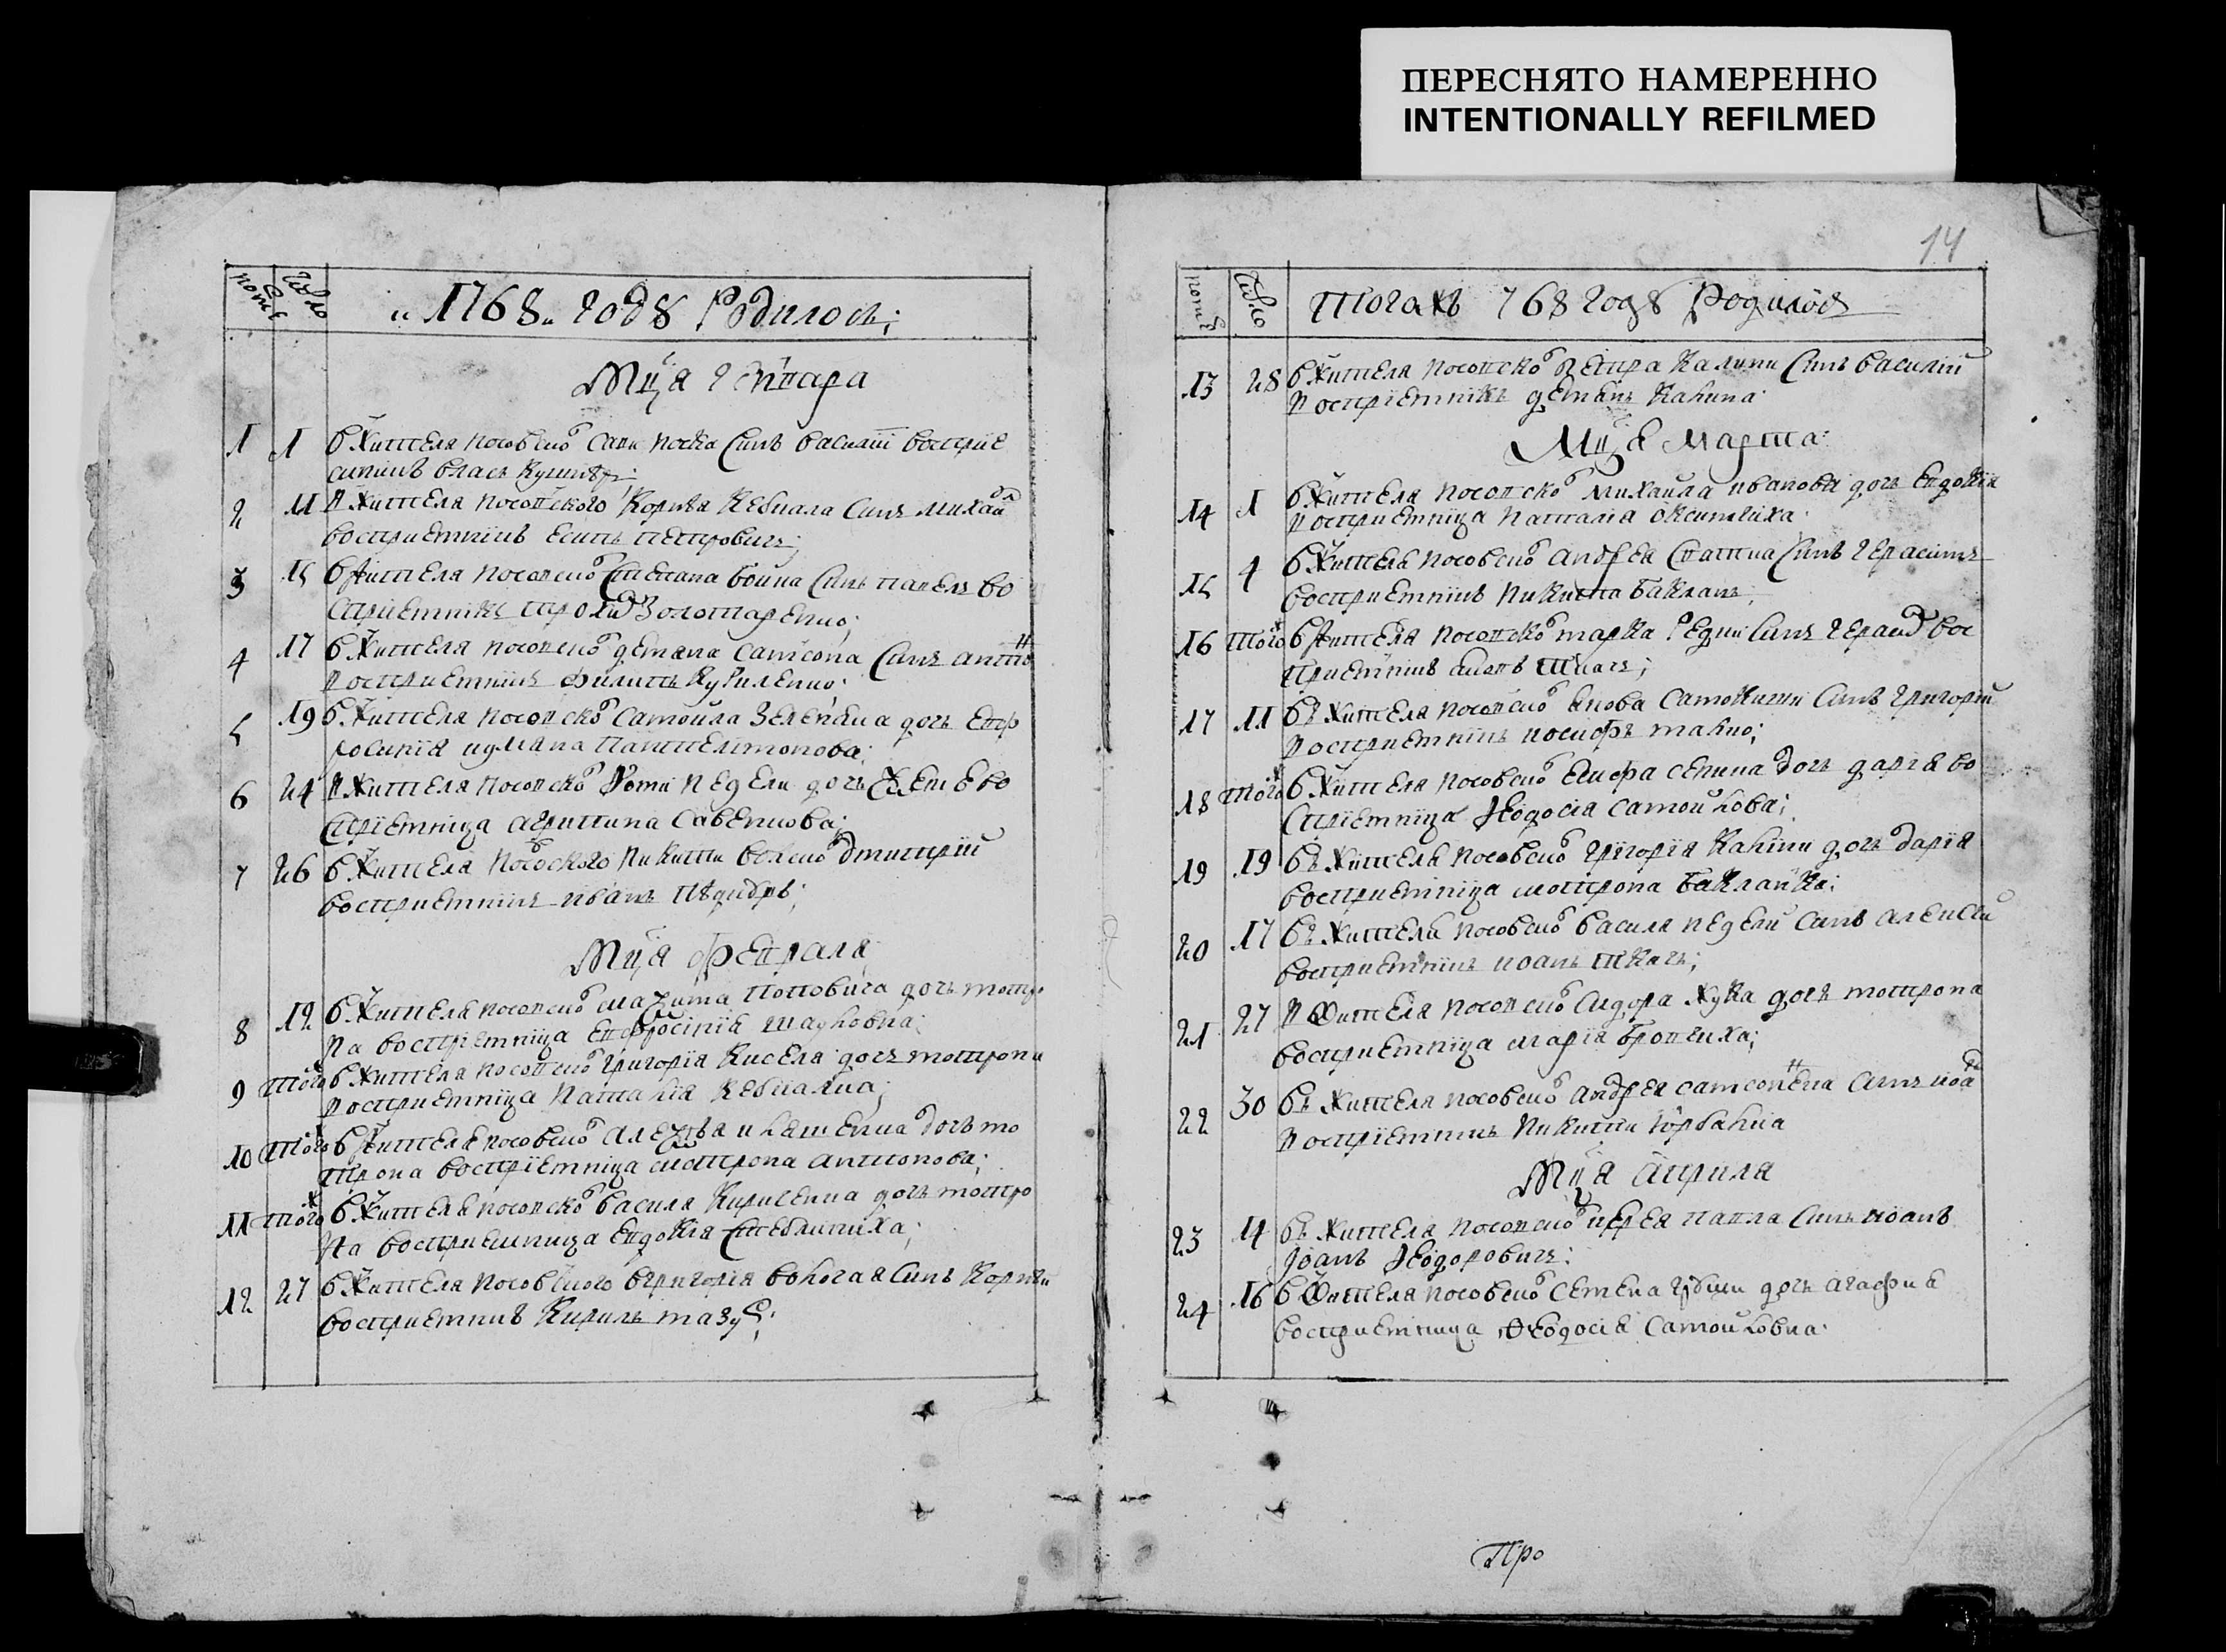 ПЕРЕСНЯТО НАМЕРЕННО
INTENTIONALLY REFILMED
14
число
1768 году Родилось;
Мца генвара
1 1 В жителя носовско Сави носка синъ василий восприе
мникъ влась
2 11 В жителя носовского Корнѣя Кевкала синъ михайл
восприемникъ есипъ петровичъ;
3 15 В жителя носовско Степана бойка синъ павелъ во
сприемникъ трохим Золотаренко;
4 17 В жителя носовско демяна самсона синъ антон
восприемникъ филипъ Куриленко;
5 19 В жителя носовско самойла Зеленяка дочь евф
росиния пантелимонова;
6 24 В жителя носовско Хоми недели дочь во
сприемница агрипина савенкова;
7 26 В жителя носовского никити дмитрий
восприемникъ иванъ
Мца февраля
8 12 В жителя носовско максима поповича дочь мотро
на восприемница евфросиния
9 того В жителя носовско григория киселя дочь мотрона
восприемница наталия кевкалка;
10 того В жителя носовско алексѣя иляшенка дочь мо
трона восприемница мотрона антонова;
11 того В жителя носовско василя Кириченка дочь мотро
на восприемница евдокия стеблиниха;
12 27 В жителя носовского григория синъ Корнѣй
восприемникъ Кирилъ мазур;
Того жъ 768 году Родилося
число
13 28 В жителя носовско петра Калини синъ василий
восприемникъ демянъ
Мца марта
14 1 В жителя носовско михайла иванова дочь евдокия
восприемница наталия
15 4 В жителя носовско андрея синъ герасимъ
восприемникъ никита бакланъ;
16 того В жителя носовско марка синъ герасим вос
приемникъ яковъ ткачъ;
17 11 Въ жителя носовско якова синъ григорий
восприемникъ иосифъ малко;
18 того В жителя носовско сенина дочь дария во
сприемница Феодосия самойлова;
19 19 Въ жителя носовско григория калини дочь дария
восприемница мотрона бакланка;
20 17 Въ жителя носовско василя недели синъ алексий
восприемникъ иоанъ ткачъ;
21 27 В жителя носовско сидора жука дочь мотрона
восприемница мария
22 30 Въ жителя носовско андрея самсоненка синъ иоан
восприемникъ никити
Мца априля
23 4 Въ жителя носовско иерея павла синъ иоанъ
Иоанъ Феодоровичъ:
24 16 В жителя носовско семена дочь агафия
восприемница феодосия самойловна
Про